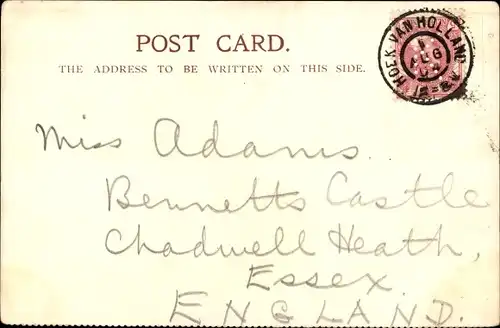 POST CARD.
THE ADDRESS TO BE WRITTEN ON THIS SIDE.
HOEK VAN HOLLAND
AUG
Miss Adams.
Bennetts Castle
Chadwell Heath,
Essex
ENGLAND.